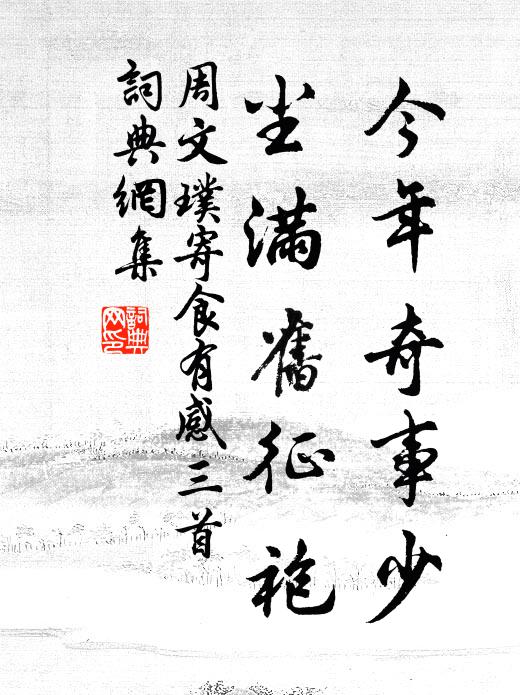 今年奇事少
尘满旧征袍
周文璞寄食有感三首
詞典網集
詞典网印